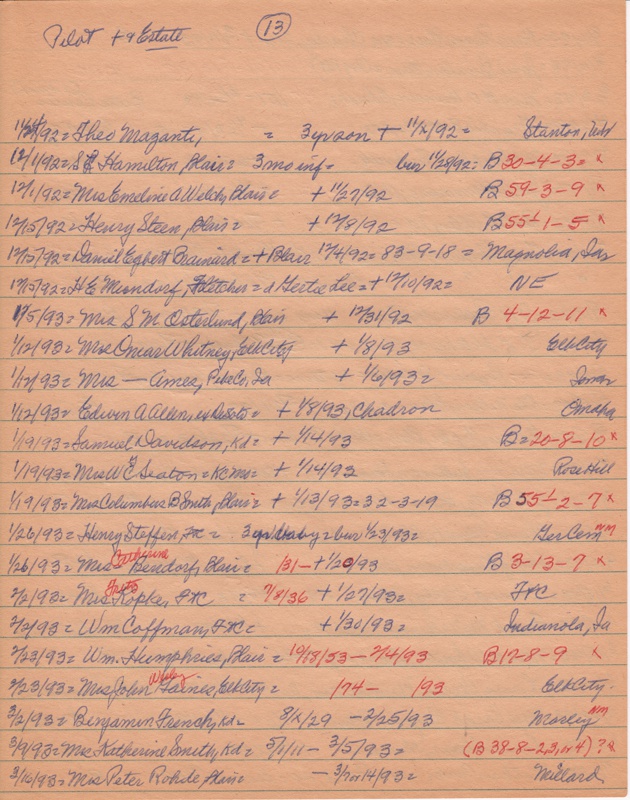 Pilot + & Estate 13
11/24/92 = Theo Mazanti, = 3 yr son + 11/x/92 = Stanton, Neb
12/1/92 = S Hamilton, Blair = 3 mo inf = bur 11/28/92 = B 30-4-3 = x
12/1/92 = Mrs Emeline A Welch, Blair = + 11/27/92 B 59-3-9 x
12/15/92 = Henry Steen, Blair = + 12/8/92 B 55½-1-5 x
12/15/92 = Daniel Egbert Brainard = + Blair 12/4/92 = 83-9-18 = Magnolia, Ia
12/15/92 = H E Merndorf, Fletcher = d Gertie Lee = + 12/10/92 = NE
1/5/93 = Mrs S M Osterlund, Blair + 12/31/92 B 4-12-11 x
1/12/93 = Mrs Omar Whitney, Elk City + 1/8/93 Elk City
1/12/93 = Mrs — Ames, Ia + 1/6/93 = Iowa
1/12/93 = Edwin A Allen, ex Desoto = + 1/8/93, Chadron Omaha
1/19/93 = Samuel Davidson, Kd = + 1/14/93 B = 20-8-10 x
1/19/93 = Mrs W E Seaton = KC Mo = + 1/14/93 Rose Hill
1/19/93 = Mrs Columbus B Smith, Blair = + 1/13/93 = 32-3-19 B 55½-2-7 x
1/26/93 = Henry Steffen, FtC = 3 yr baby = bur 1/23/93 = Ger Cem NM
1/26/93 = Mrs Catherine Bensdorf, Blair = /31 - + 1/20/93 B 3-13-7 x
2/2/93 = Mrs Kopke, FtC = 7/8/36 + 1/27/93 = FtC
2/2/93 = Wm Coffman, FtC = + 1/30/93 = Indianola, Ia
2/23/93 = Wm. Humphries, Blair = 10/18/53 - 2/4/93 B 17-8-9 x
2/23/93 = Mrs John Faines, Elk City = /74 - /93 Elk City
3/2/93 = Benjamin French, Kd = 8/x/29 - 2/25/93 Mosley NM
3/9/93 = Mrs Katherine Smith, Kd = 5/1/11 - 3/5/93 = (B 38-8-2,3, or 4) ? x
3/16/93 = Mrs Peter Rohde, Blair = - 3/7 or 14/93 = Millard